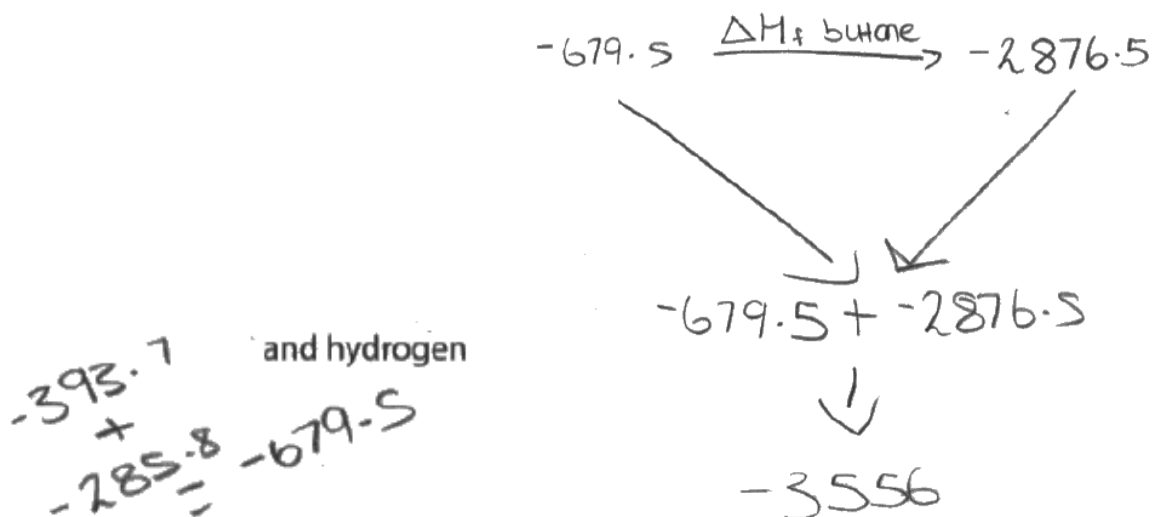 -679.5 ΔHf butane -2876.5
-679.5 + -2876.5
-3556
and hydrogen
-393.7
+
-285.8
= -679.5